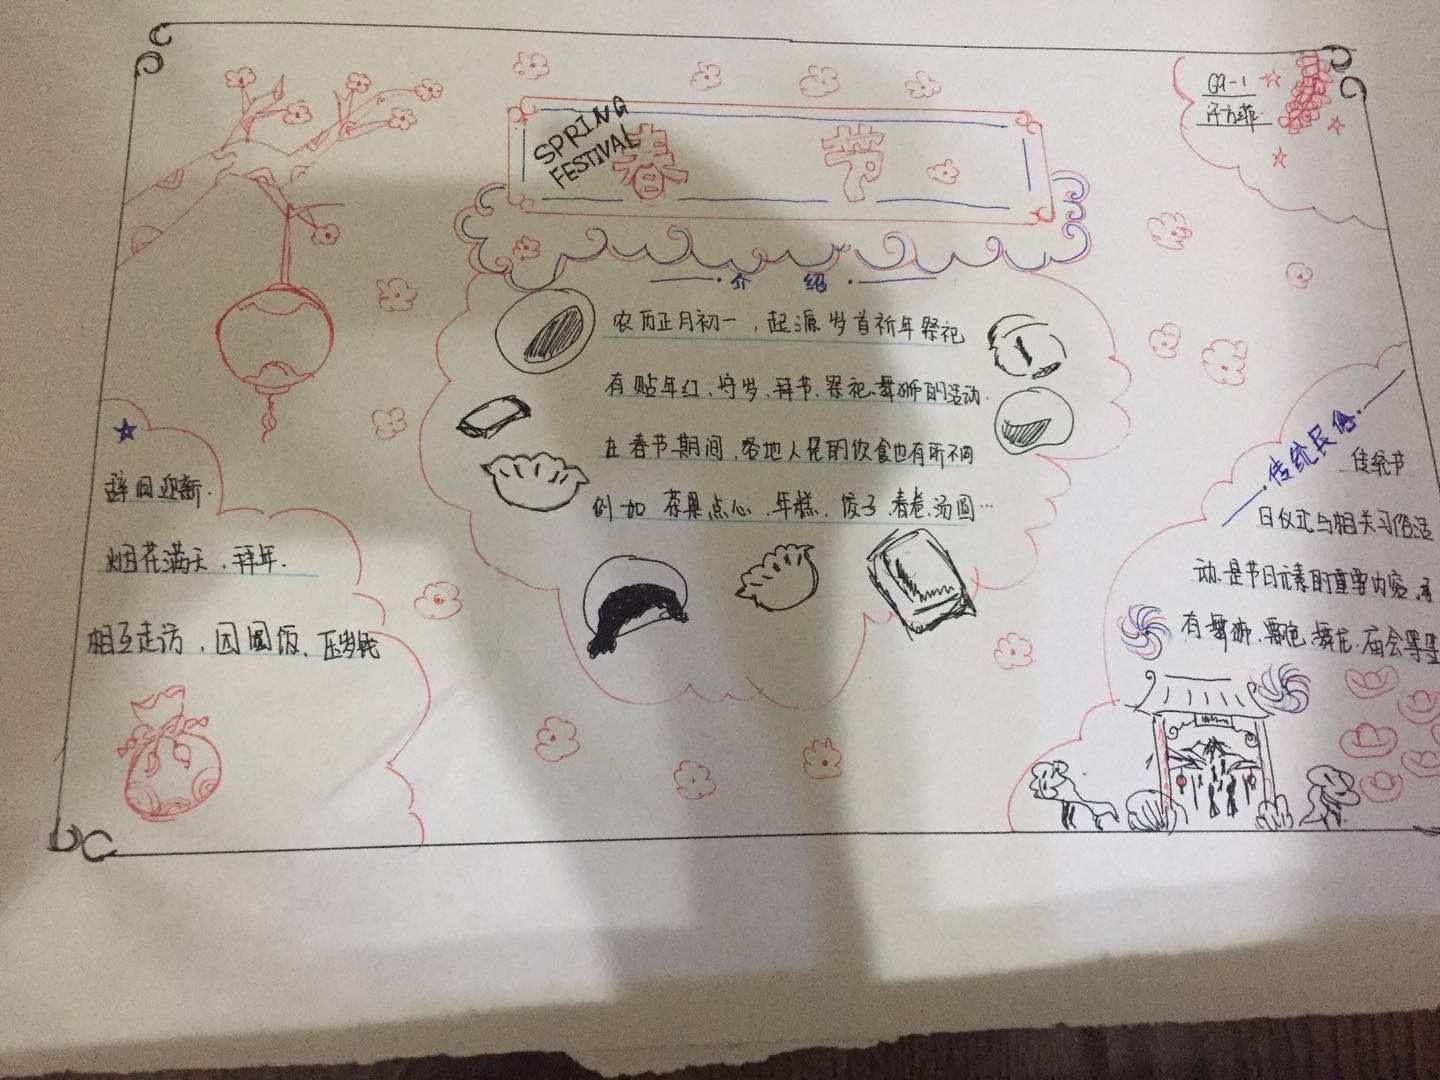 SPRING
FESTIVAL
春 节
G9-1
许方菲
介 绍
农历正月初一，起源岁首祈年祭祀
有贴年红、守岁、拜节、祭祀、舞狮的活动.
在春节期间，各地人民的饮食也有所不同
例如 茶果点心、年糕、饺子、春卷、汤圆…
辞旧迎新.
烟花满天、拜年.
相互走访、团圆饭、压岁钱
传统民俗
传统节
日仪式与相关习俗活
动.是节日元素的重要内容,
有舞狮、飘色、舞龙、庙会等等